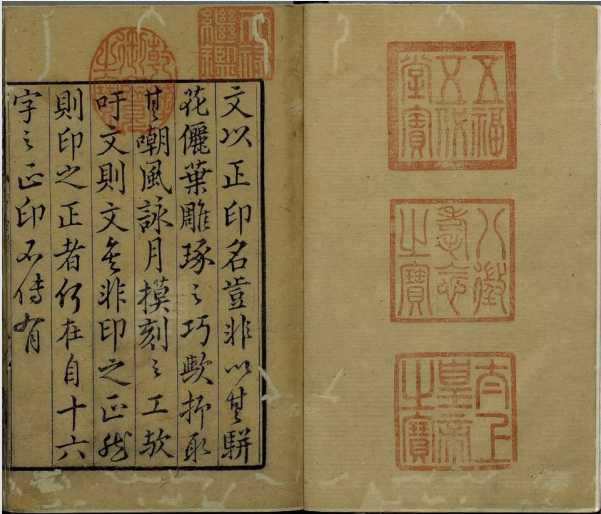 五福
五代
堂寶
八徵
耄念
之寶
太上
皇帝
之寶
天祿
繼鑑
乾隆
御覽
之寶
文以正印名豈非以其駢
花儷葉雕琢之巧歟抑取
其嘲風詠月摸刻之工歟
吁文則文矣非印之正然
則印之正者何在自十六
字之正印不傳有